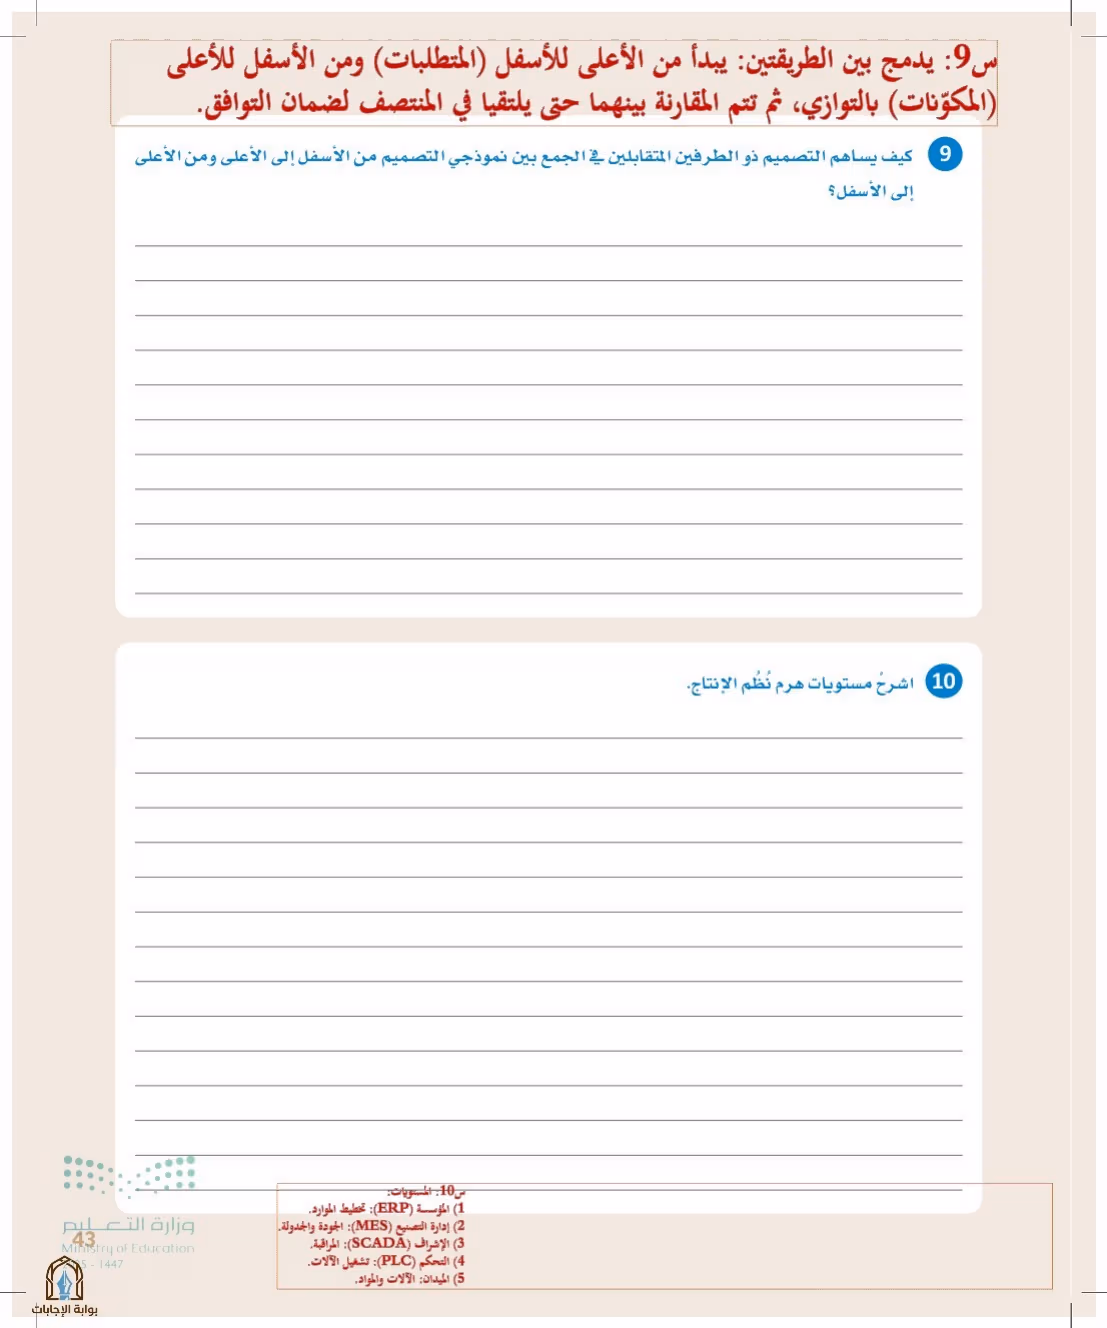 س9: يدمج بين الطريقتين: يبدأ من الأعلى للأسفل (المتطلبات) ومن الأسفل للأعلى
(المكوّنات) بالتوازي، ثم تتم المقارنة بينهما حتى يلتقيا في المنتصف لضمان التوافق.
9 كيف يساهم التصميم ذو الطرفين المتقابلين في الجمع بين نموذجي التصميم من الأسفل إلى الأعلى ومن الأعلى
إلى الأسفل؟
10 اشرحْ مستويات هرم نُظُم الإنتاج.
س10: المستويات:
1) المؤسسة (ERP): تخطيط الموارد.
2) إدارة التصنيع (MES): الجودة والجدولة.
3) الإشراف (SCADA): المراقبة.
4) التحكم (PLC): تشغيل الآلات.
5) الميدان: الآلات والمواد.
وزارة التعـــليم
43
Ministry of Education
- 1447
بوابة الإجابات